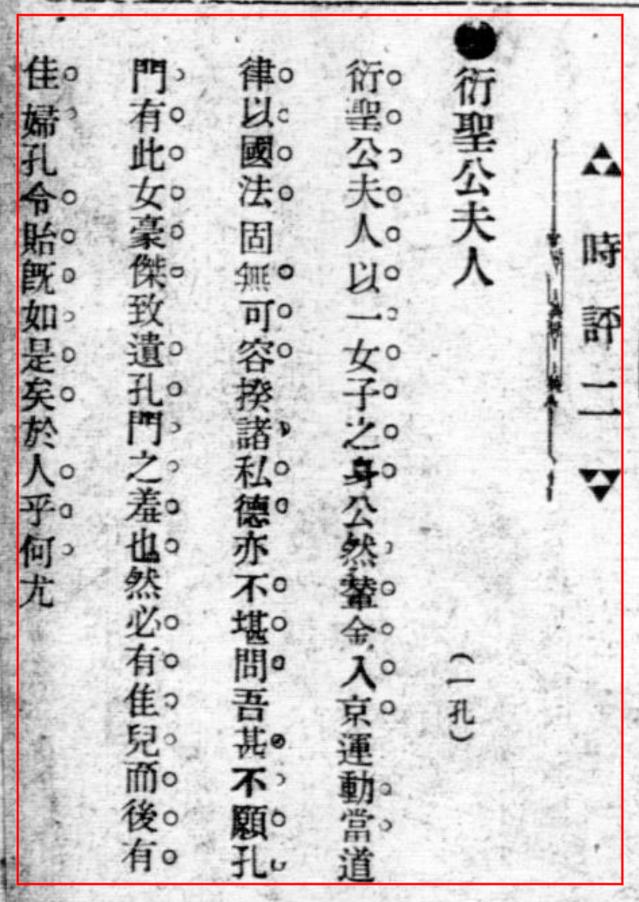 時評二
●衍聖公夫人 (一孔)
衍聖公夫人以一女子之身公然輦金入京運動當道
律以國法固無可容揆諸私德亦不堪問吾甚不願孔
門有此女豪傑致遺孔門之羞也然必有佳兒而後有
佳婦孔令貽既如是矣於人乎何尤